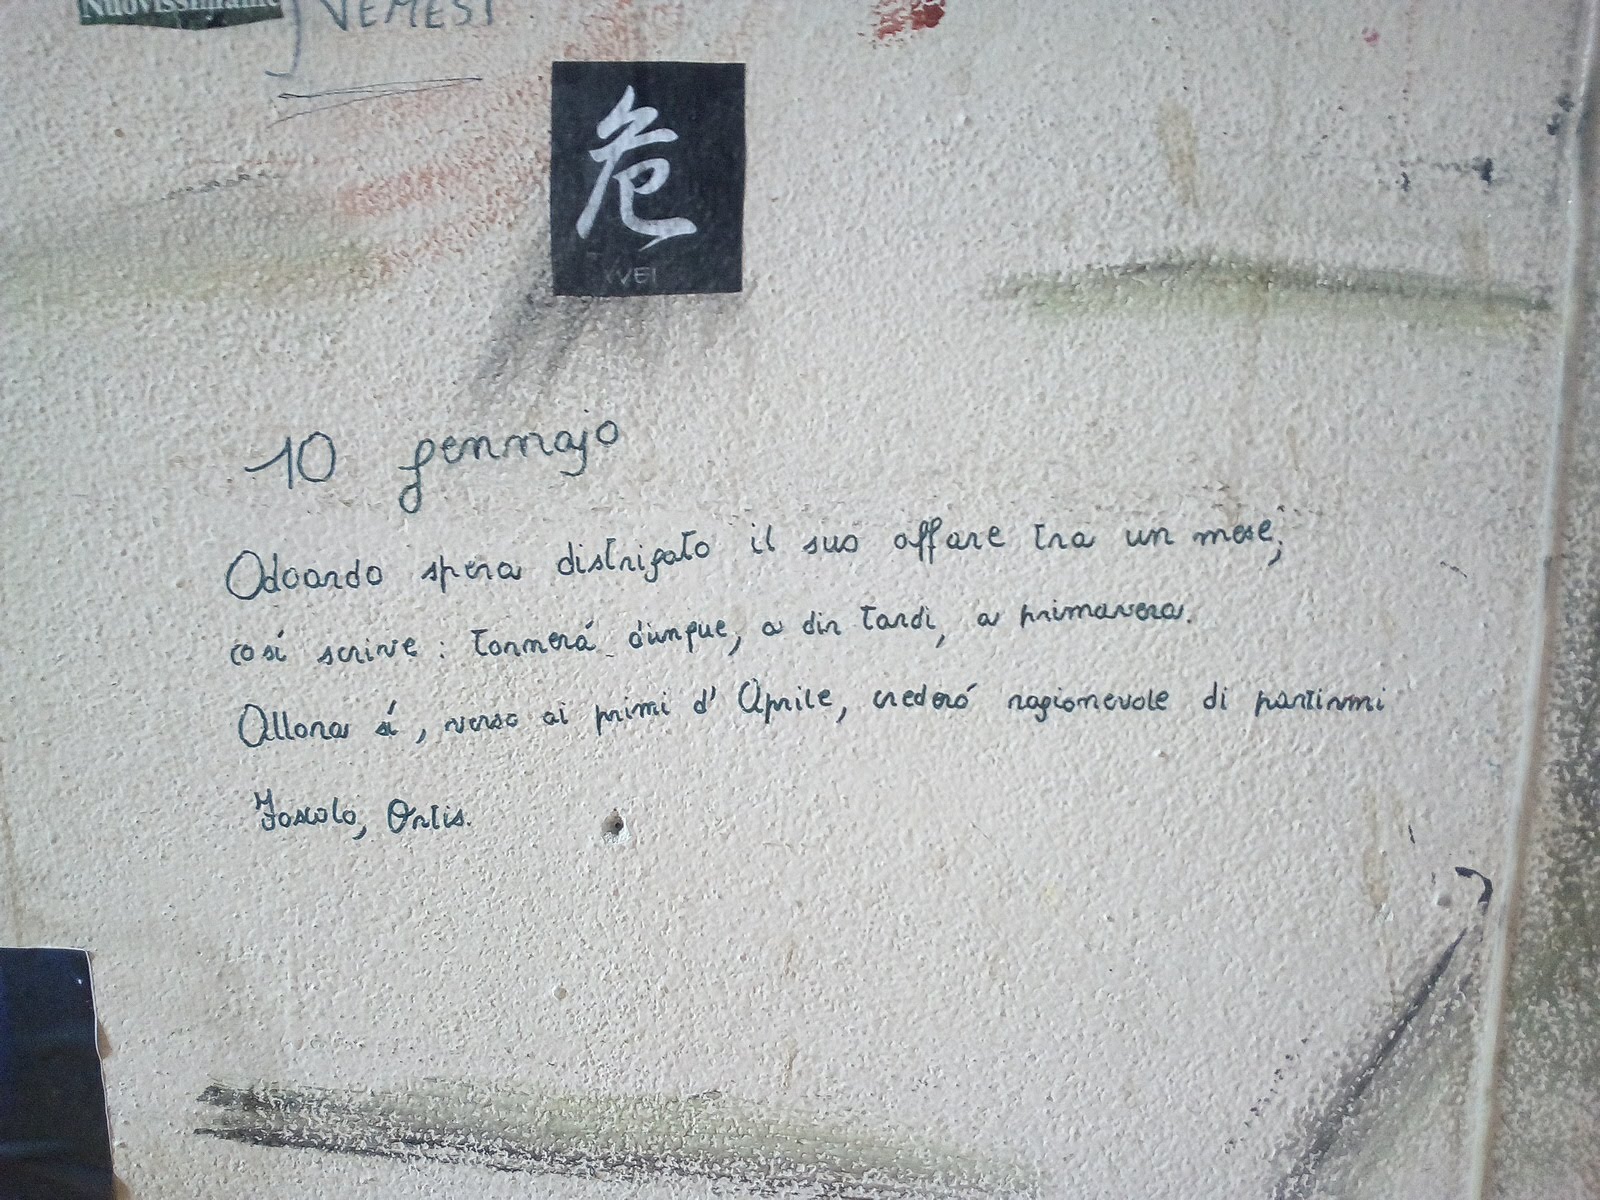 Nuovissimame
NEMESI
危
WEI
10 gennajo
Odoardo spera distrigato il suo affare tra un mese;
così scrive: tornerá dunque, a dir tardi, a primavera.
Allora sí, verso ai primi d' Aprile, crederó ragionevole di partirmi
Foscolo, Ortis.